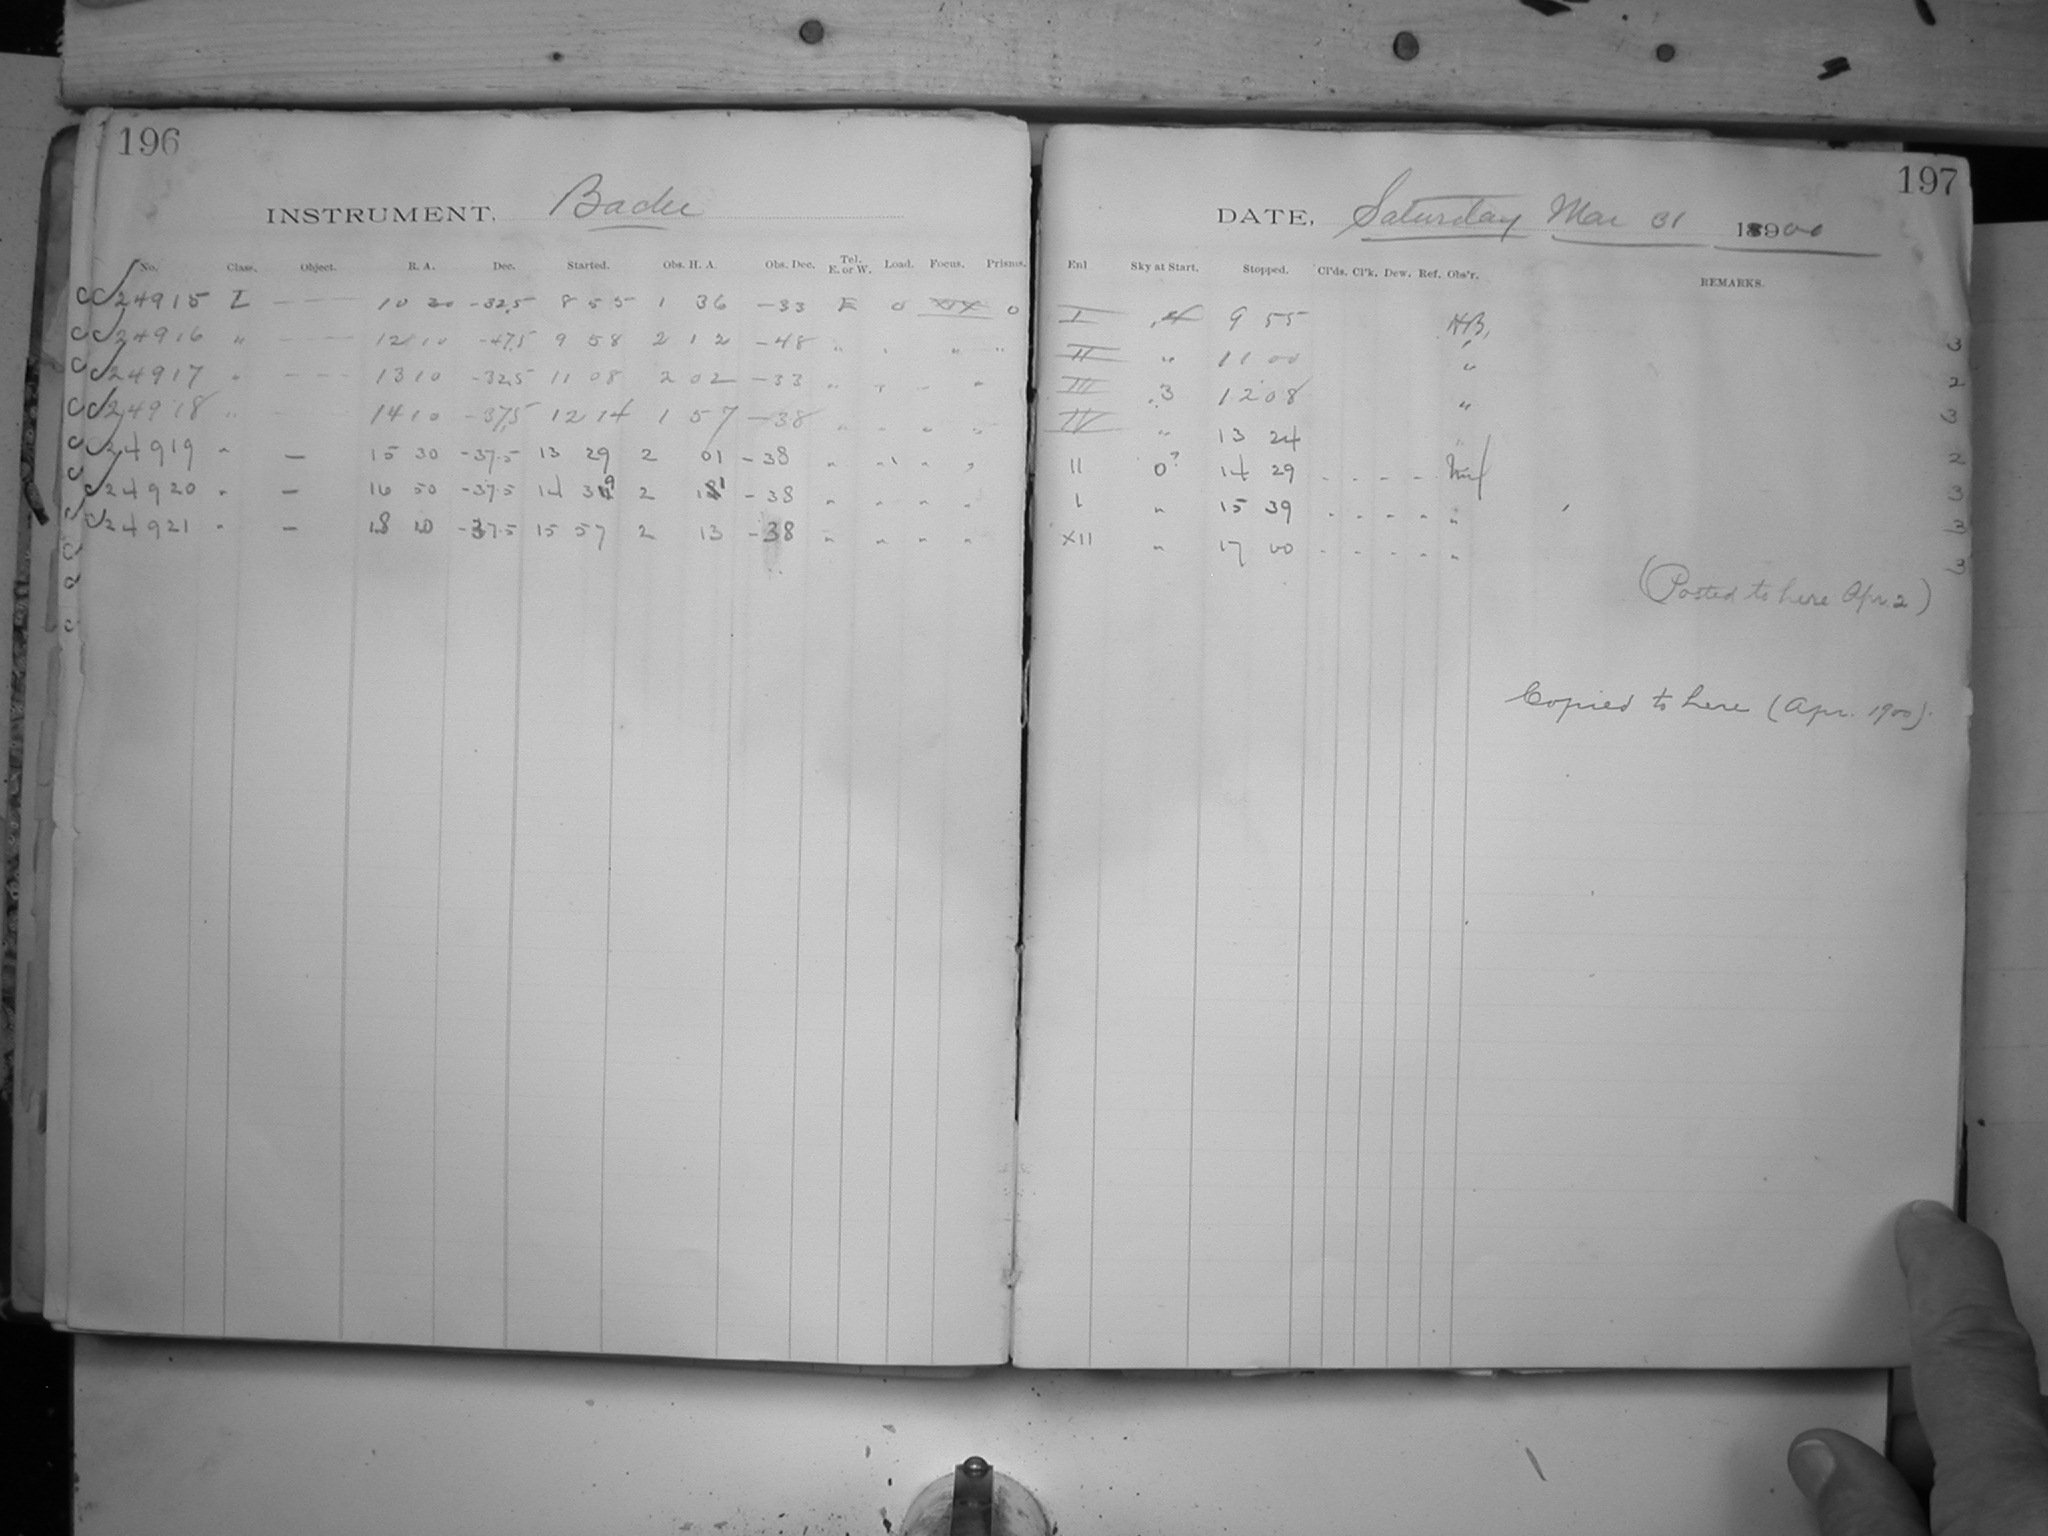 196
INSTRUMENT. Bache
No. Class. Object. R. A. Dec. Started. Obs. H. A. Obs. Dec. Tel. E. or W. Load. Focus. Prisms.
24915 I — 10 30 -32.5 8 55 1 36 -33 E 0 XIX 0
24916 " — 12 10 -47.5 9 58 2 12 -48 " " " "
24917 " — 13 10 -32.5 11 08 2 02 -33 " " " "
24918 " — 14 10 -37.5 12 14 1 57 -38 " " " "
24919 " — 15 30 -37.5 13 29 2 01 -38 " " " "
24920 " — 16 50 -37.5 14 39 2 11 -38 " " " "
24921 " — 18 20 -37.5 15 57 2 13 -38 " " " "
197
DATE, Saturday Mar 31 1900
Enl Sky at Start. Stopped. Cl'ds. Cl'k. Dew. Ref. Obs'r. REMARKS.
I 4 9 55 HB. 3
II " 11 00 " 2
III 3 12 08 " 3
IV " 13 24 " 2
II 0? 14 29 3
I " 15 39 " 3
XII " 17 00 " 3
(Posted to here Apr. 2)
Copied to here (Apr. 1900).